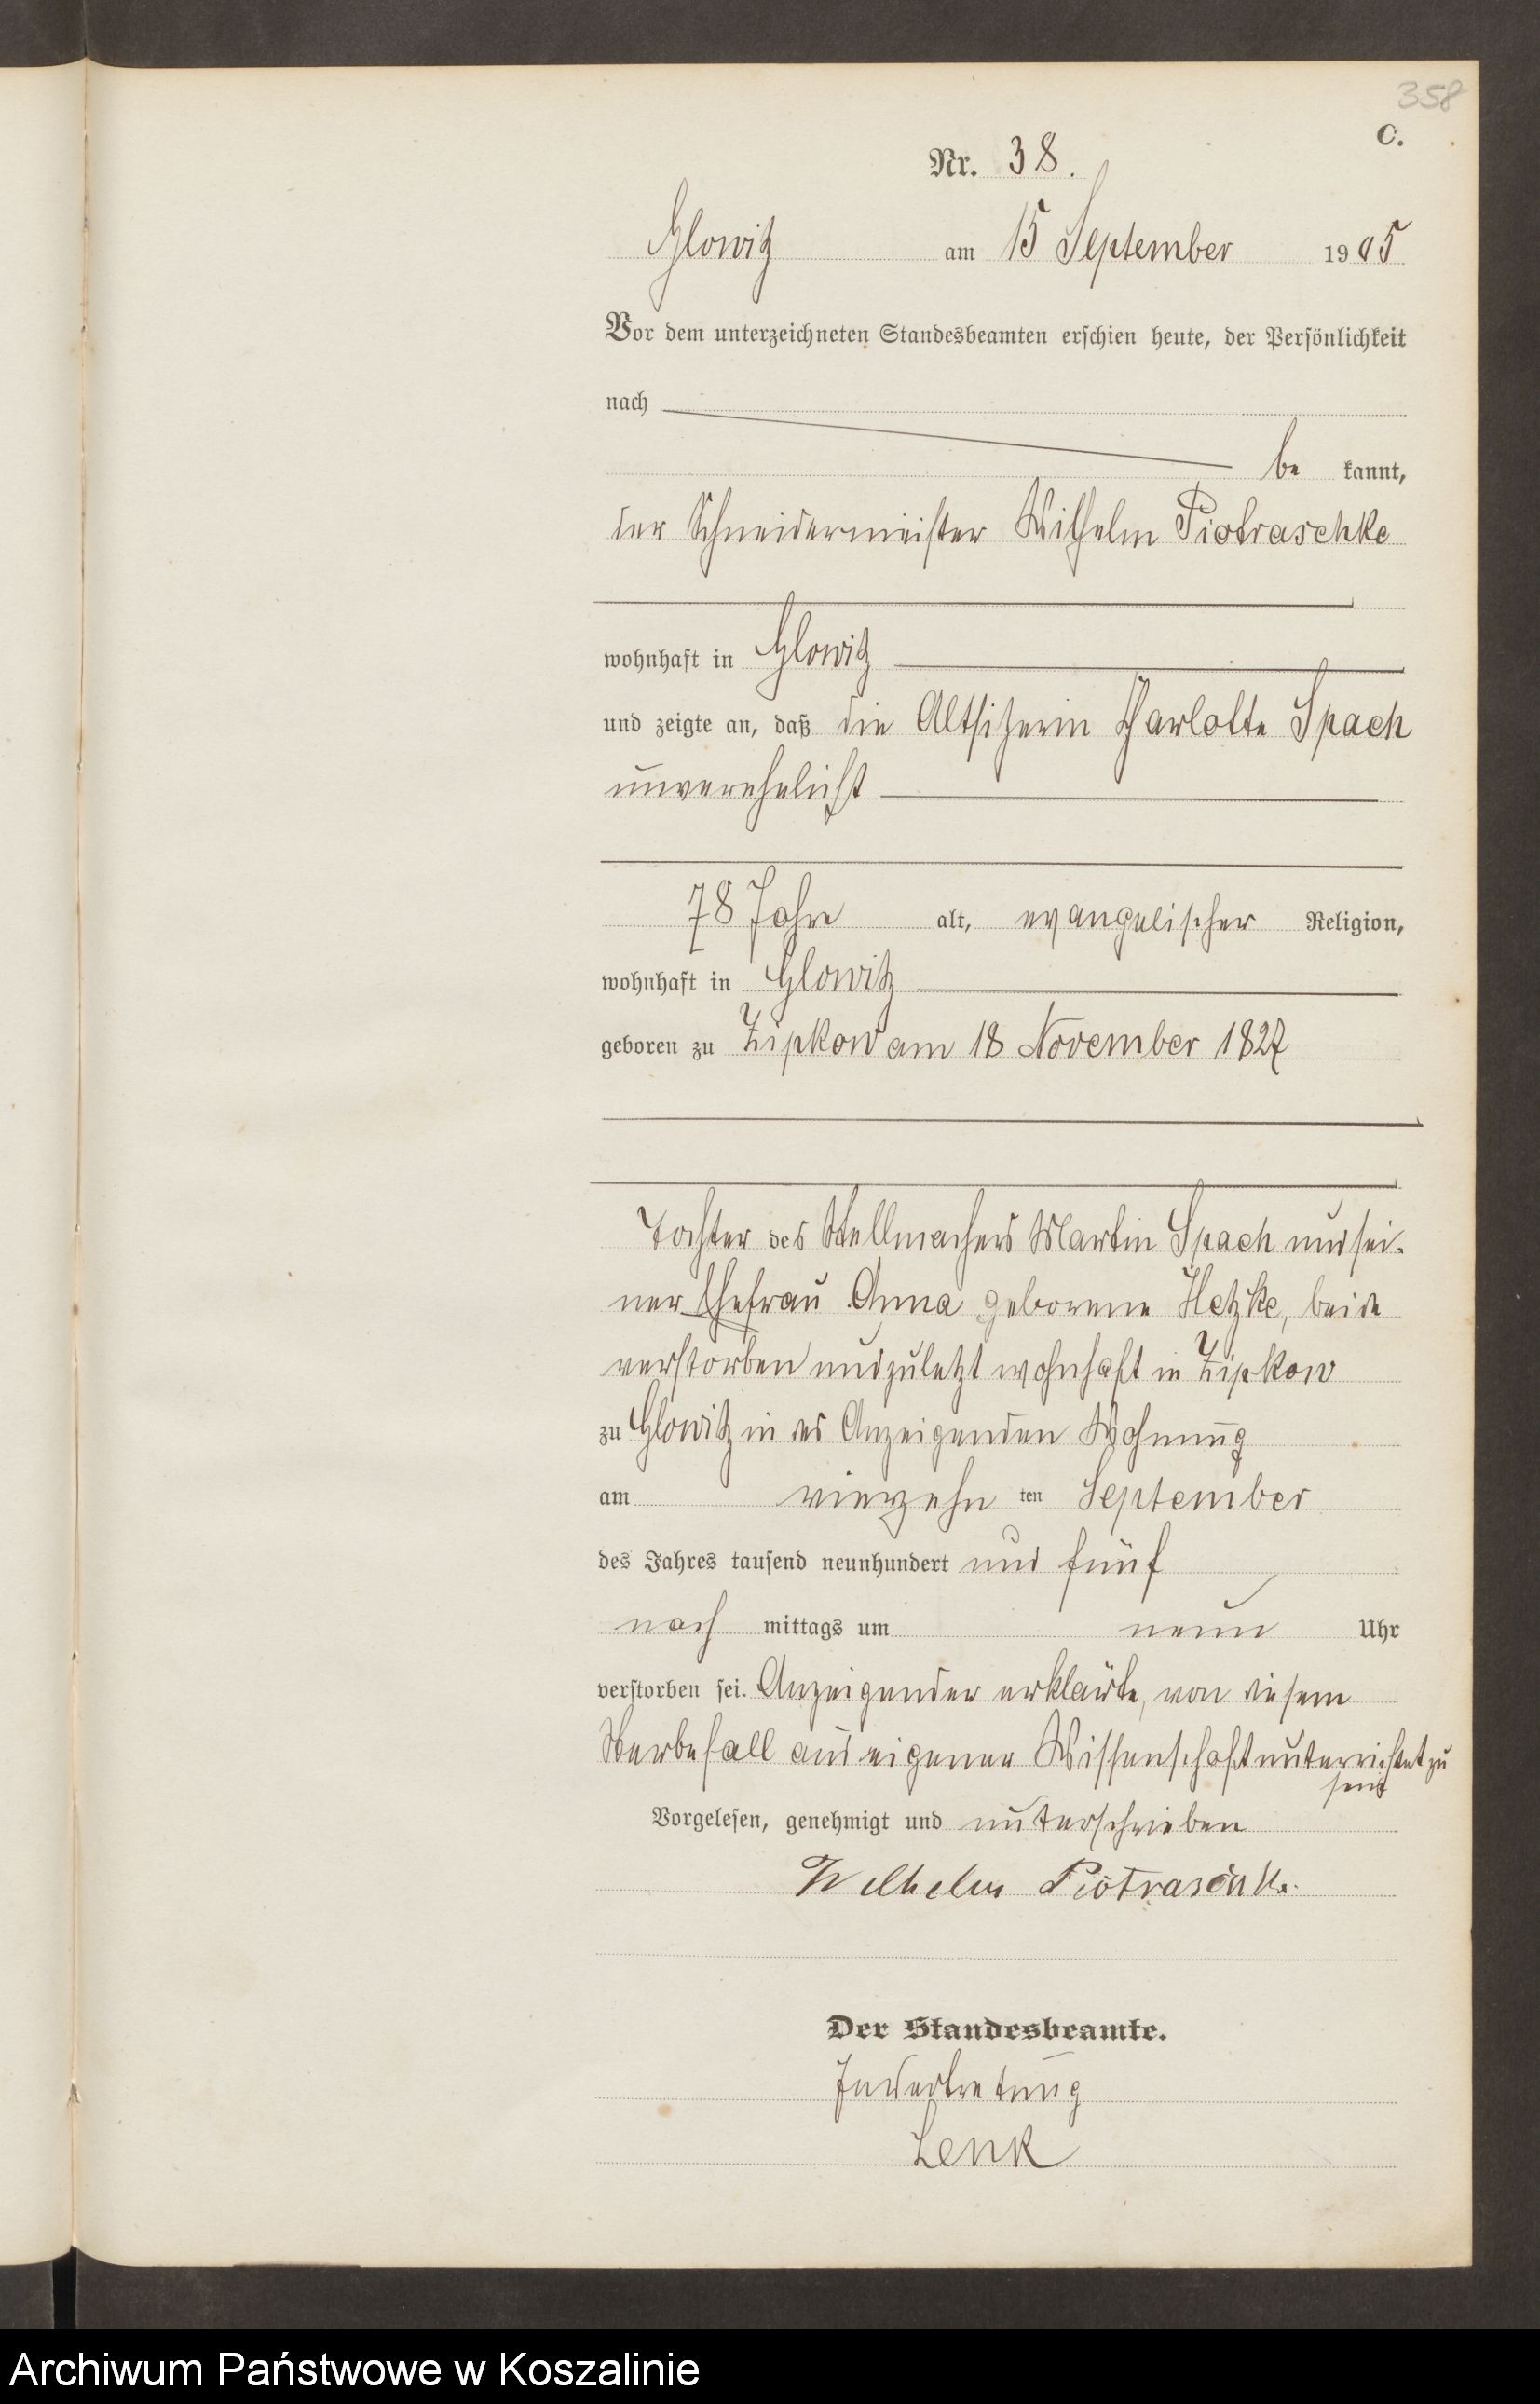 358
C.
Nr. 38.
Glowitz am 15 September 1905
Vor dem unterzeichneten Standesbeamten erschien heute, der Persönlichkeit
nach
be kannt,
der Schneidermeister Wilhelm Piotraschke
wohnhaft in Glowitz
und zeigte an, daß die Altsitzerin Charlotte Spach
unverehelicht
78 Jahre alt, evangelischer Religion,
wohnhaft in Glowitz
geboren zu Zipkow am 18 November 1827
Tochter des Stellmachers Martin Spach und sei-
ner Ehefrau Anna geborene Hetzke, beide
verstorben und zuletzt wohnhaft in Zipkow
zu Glowitz in des Anzeigenden Wohnung
am vierzehn ten September
des Jahres tausend neunhundert und fünf
nach mittags um neun Uhr
verstorben sei. Anzeigender erklärte, von diesem
Sterbefall aus eigener Wissenschaft unterrichtet zu
sein
Vorgelesen, genehmigt und unterschrieben
Wilhelm Piotraschke
Der Standesbeamte.
In Vertretung
Lenk
Archiwum Państwowe w Koszalinie